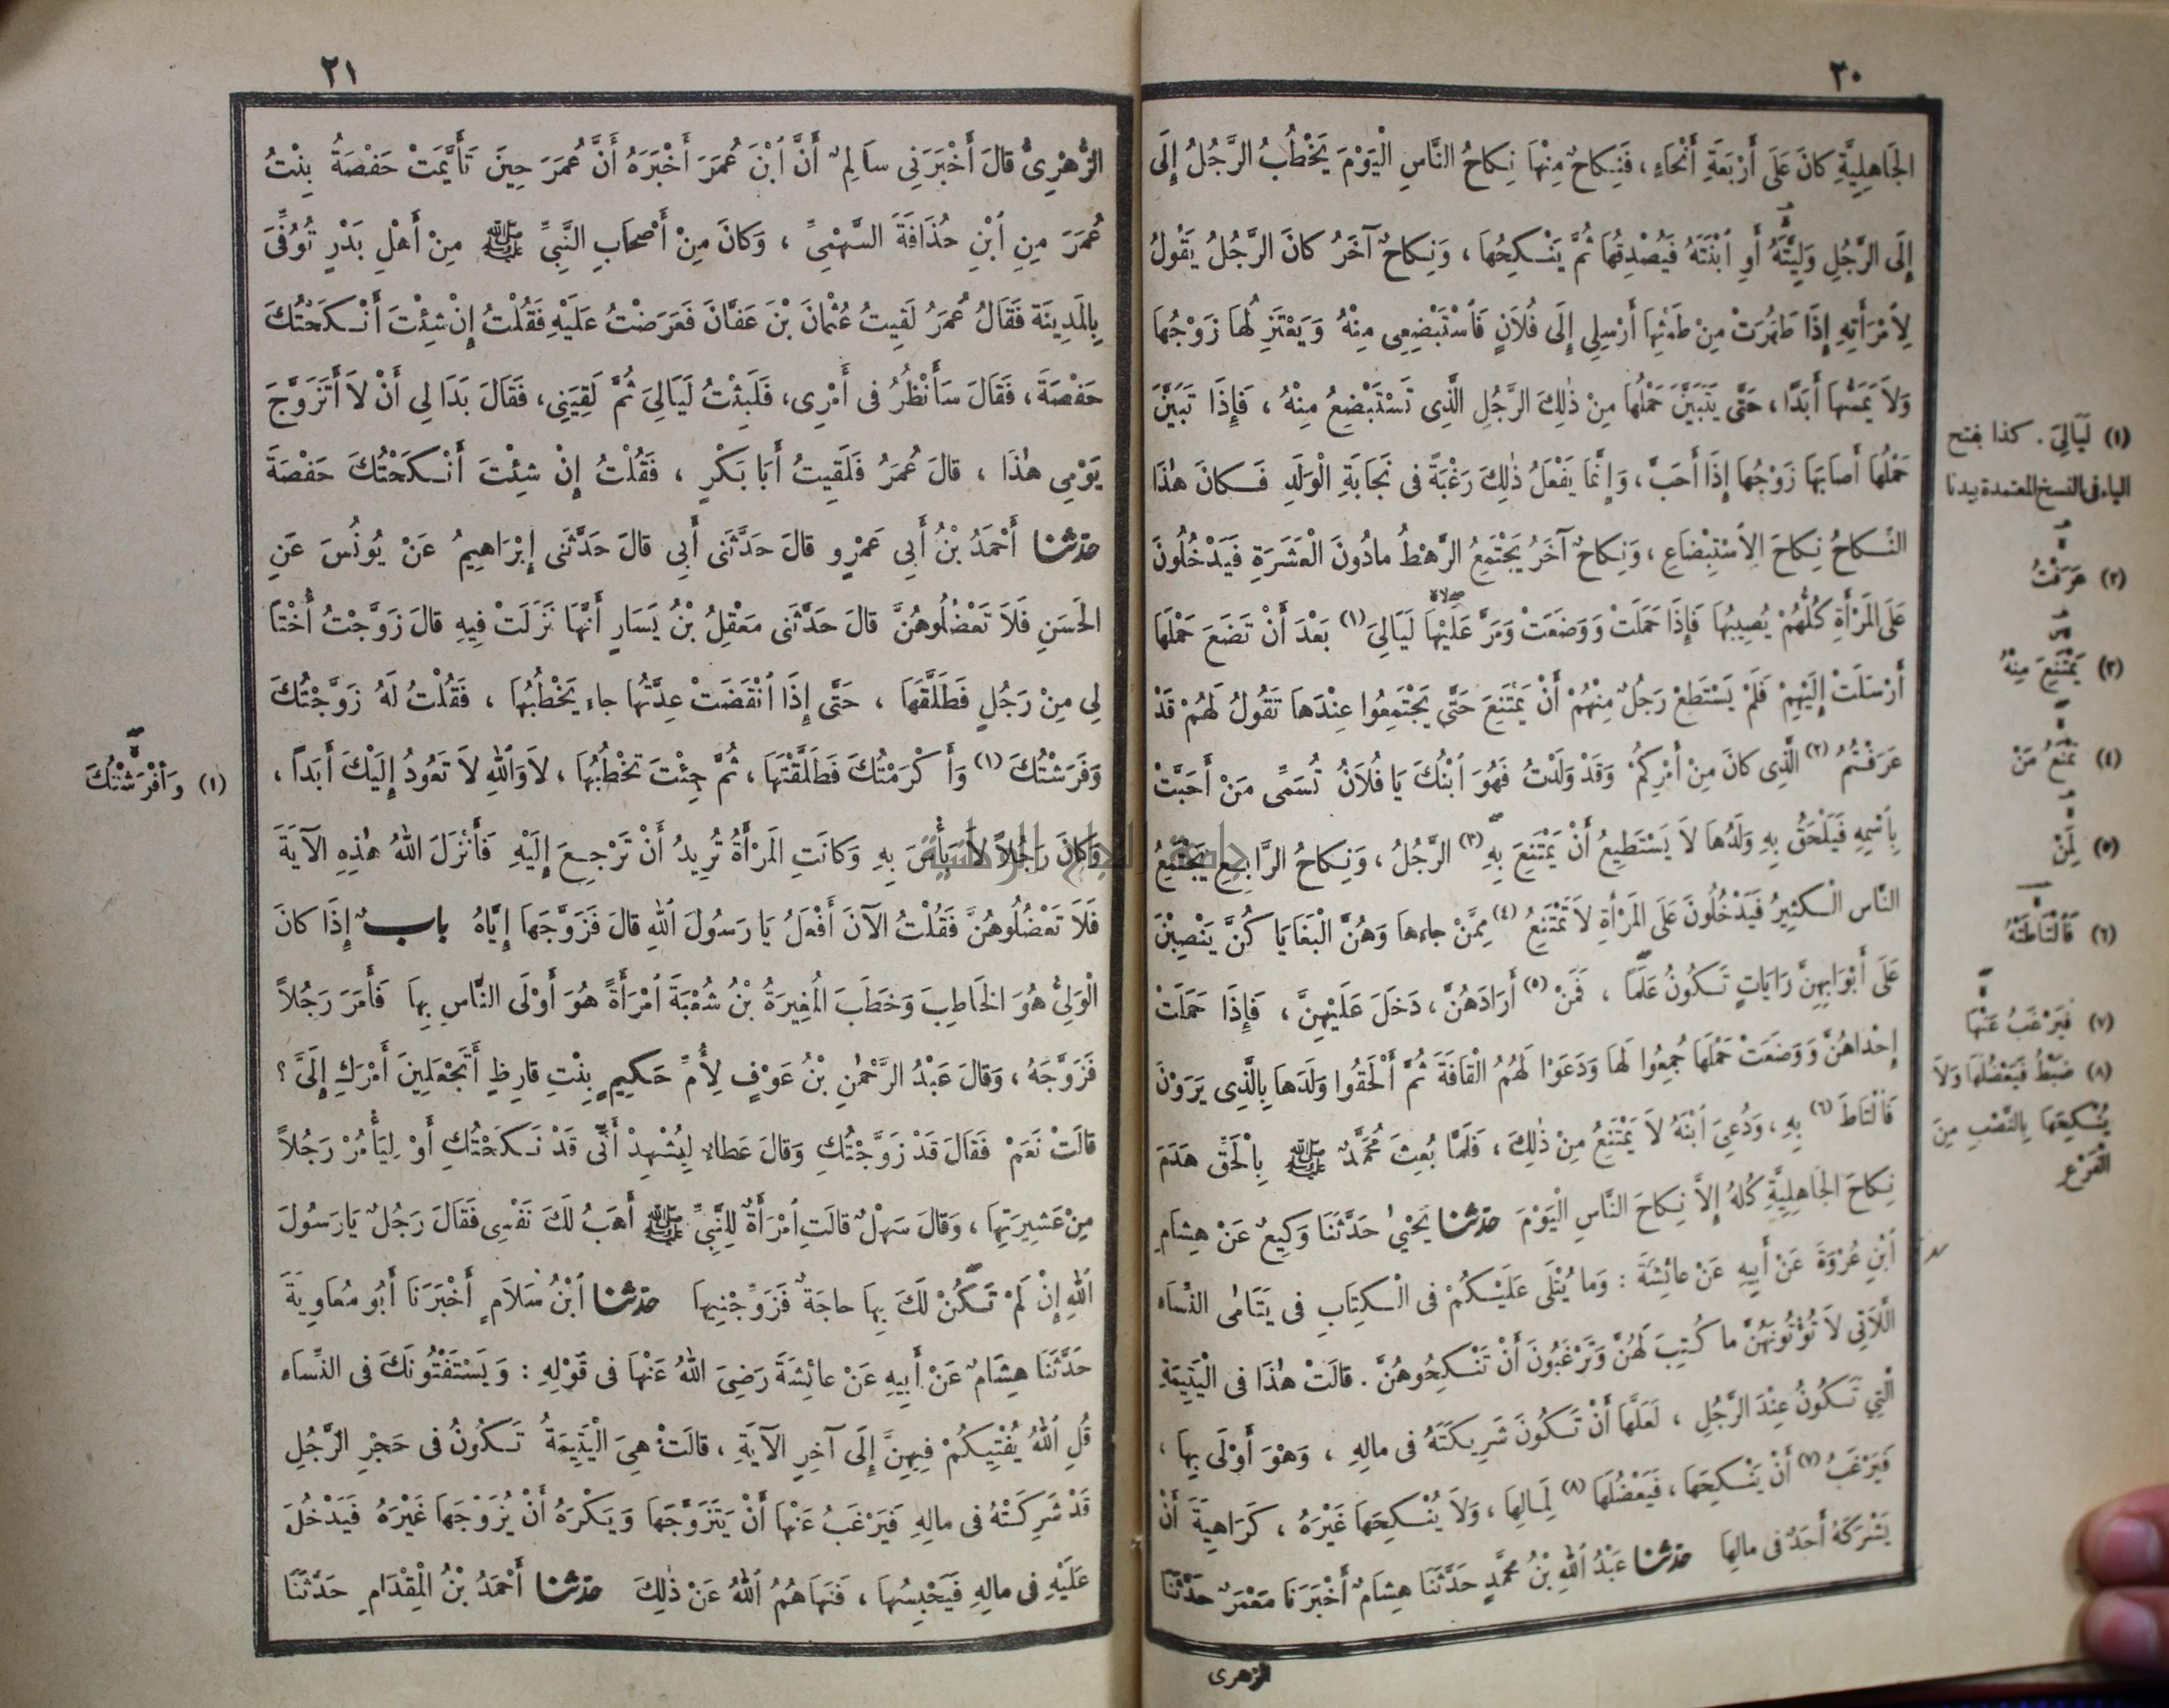 ٢٠
الجَاهِلِيَّةِ كانَ عَلَى أَرْبَعَةِ أَنْحَاءٍ ، فَنِكاحٌ مِنْهَا نِكاحُ النَّاسِ الْيَوْمَ يَخْطُبُ الرَّجُلُ إِلَى
إِلَى الرَّجُلِ وَلِيَّتَهُ أَوِ ٱبْنَتَهُ فَيُصْدِقُهَا ثُمَّ يَنْكِحُهَا ، وَنِكاحٌ آخَرُ كانَ الرَّجُلُ يَقُولُ
لِاُمْرَأَتِهِ إِذَا طَهُرَتْ مِنْ طَمْثِهَا أَرْسِلِي إِلَى فُلَانٍ فَاسْتَبْضِعِي مِنْهُ وَيَعْتَزِلُهَا زَوْجُهَا
وَلاَ يَمَسُّهَا أَبَدًا ، حَتَّى يَتَبَيَّنَ حَمْلُهَا مِنْ ذٰلِكَ الرَّجُلِ الَّذِى تَسْتَبْضِعُ مِنْهُ ، فَإِذَا تَبَيَّنَ
حَمْلُهَا أَصَابَهَا زَوْجُهَا إِذَا أَحَبَّ ، وَإِنَّمَا يَفْعَلُ ذٰلِكَ رَغْبَةً فى نَجَابَةِ الْوَلَدِ فَكانَ هٰذَا
النِّكاحُ نِكاحَ الِاُسْتِبْضَاعِ ، وَنِكاحٌ آخَرُ يَجْتَمِعُ الرَّهْطُ مادُونَ الْعَشَرَةِ فَيَدْخُلُونَ
عَلَى المَرْأَةِ كُلُّهُمْ يُصِيبُهَا فَإِذَا حَمَلَتْ وَوَضَعَتْ وَمَرَّ عَلَيْهَا لَيَالِيَ (١) بَعْدَ أَنْ تَضَعَ حَمْلَهَا
أَرْسَلَتْ إِلَيْهِمْ فَلَمْ يَسْتَطِعْ رَجُلٌ مِنْهُمْ أَنْ يَمْتَنِعَ حَتَّى يَجْتَمِعُوا عِنْدَهَا تَقُولُ لَهُمْ قَدْ
عَرَفْتُمُ (٢) الَّذِى كانَ مِنْ أَمْرِكُمْ وَقَدْ وَلَدْتُ فَهُوَ ٱبْنُكَ يَا فُلَانُ تُسَمِّى مَنْ أَحَبَّتْ
بِاُسْمِهِ فَيَلْحَقُ بِهِ وَلَدُهَا لاَ يَسْتَطِيعُ أَنْ يَمْتَنِعَ بِهِ (٣) الرَّجُلُ ، وَنِكاحُ الرَّابِعِ يَجْتَمِعُ
النَّاسُ الْكَثِيرُ فَيَدْخُلُونَ عَلَى المَرْأَةِ لاَ تَمْتَنِعُ (٤) مِمَّنْ جاءها وَهُنَّ الْبَغَايَا كُنَّ يَنْصِبْنَ
عَلَى أَبْوَابِهِنَّ رَايَاتٍ تَكُونُ عَلَمًا ، فَمَنْ (٥) أَرَادَهُنَّ ، دَخَلَ عَلَيْهِنَّ ، فَإِذَا حَمَلَتْ
إِحْدَاهُنَّ وَوَضَعَتْ حَمْلَهَا جُمِعُوا لَهَا وَدَعَوْا لَهُمُ الْقَافَةَ ثُمَّ أَلْحَقُوا وَلَدَهَا بِالَّذِى يَرَوْنَ
فَالْتَاطَ (٦) بِهِ ، وَدُعِيَ ٱبْنَهُ لاَ يَمْتَنِعُ مِنْ ذٰلِكَ ، فَلَمَّا بُعِثَ مُحَمَّدٌ ﷺ بِالْحَقِّ هَدَمَ
نِكاحَ الجَاهِلِيَّةِ كُلهُ إِلاَّ نِكاحَ النَّاسِ الْيَوْمَ حدّثنا يَحْيٰى حَدَّثَنَا وَكِيعٌ عَنْ هِشَامِ
ٱبْنِ عُرْوَةَ عَنْ أَبِيهِ عَنْ عائِشَةَ : وَما يُتْلَى عَلَيْكُمْ فى الْكِتَابِ فى يَتَامٰى النِّسَاءِ
اللَّاتِي لاَ تُؤْتُونَهُنَّ ما كُتِبَ لَهُنَّ وَتَرْغَبُونَ أَنْ تَنْكِحُوهُنَّ . قالَتْ هٰذَا فى الْيَتِيمَةِ
الَّتِي تَكُونُ عِنْدَ الرَّجُلِ ، لَعَلَّهَا أَنْ تَكُونَ شَرِيكَتَهُ فى مالِهِ ، وَهْوَ أَوْلَى بِهَا ،
فَيَرْغَبُ (٧) أَنْ يَنْكِحَهَا ، فَيَعْضُلَهَا (٨) لِمَالِهَا ، وَلاَ يُنْكِحَهَا غَيْرَهُ ، كَرَاهِيَةَ أَنْ
يَشْرَكَهُ أَحَدٌ فى مالِهَا حدّثنا عَبْدُ اللّٰهِ بْنُ مُحَمَّدٍ حَدَّثَنَا هِشَامٌ أَخْبَرَنَا مَعْمَرٌ حَدَّثَنَا
الزهرى
(١) لَيَالِيَ . كذا بفتح
الياء فى النسخ المعتمدة بيدنا
(٢) عَرَفْتُ
(٣) يَمْتَنِعَ مِنْهُ
(٤) تَمْنَعُ مَنْ
(٥) لِمَنْ
(٦) فَالْتَاطَتْهُ
(٧) فَيَرْغَبُ عَنْهَا
(٨) ضَبْطُ فَيَعْضُلَهَا وَلاَ
يُنْكِحَهَا بِالنَّصْبِ مِنَ
الْفَرْعِ
٢١
الزُّهْرِىُّ قالَ أَخْبَرَنِى سالِمٌ أَنَّ ٱبْنَ عُمَرَ أَخْبَرَهُ أَنَّ عُمَرَ حِينَ تَأَيَّمَتْ حَفْصَةُ بِنْتُ
عُمَرَ مِنِ ٱبْنِ حُذَافَةَ السَّهْمِيِّ ، وَكانَ مِنْ أَصْحَابِ النَّبِيِّ ﷺ مِنْ أَهْلِ بَدْرٍ تُوُفِّىَ
بِالمَدِينَةِ فَقَالُ عُمَرُ لَقِيتُ عُثْمانَ بْنَ عَفَّانَ فَعَرَضْتُ عَلَيْهِ فَقُلْتُ إِنْ شِئْتَ أَنْكَحْتُكَ
حَفْصَةَ ، فَقَالَ سَأَنْظُرُ فى أَمْرِى ، فَلَبِثْتُ لَيَالِيَ ثُمَّ لَقِيَنِى ، فَقَالَ بَدَا لِى أَنْ لاَ أَتَزَوَّجَ
يَوْمِى هٰذَا ، قالَ عُمَرُ فَلَقِيتُ أَبَا بَكْرٍ ، فَقُلْتُ إِنْ شِئْتَ أَنْكَحْتُكَ حَفْصَةَ
حدّثنا أَحْمَدُ بْنُ أَبِى عَمْرٍو قالَ حَدَّثَنِى أَبِى قالَ حَدَّثَنِى إِبْرَاهِيمُ عَنْ يُونُسَ عَنِ
الحَسَنِ فَلَا تَعْضُلُوهُنَّ قالَ حَدَّثَنِى مَعْقِلُ بْنُ يَسَارٍ أَنَّهَا نَزَلَتْ فِيهِ قالَ زَوَّجْتُ أُخْتًا
لِى مِنْ رَجُلٍ فَطَلَّقَهَا ، حَتَّى إِذَا ٱنْقَضَتْ عِدَّتُهَا جاء يَخْطُبُهَا ، فَقُلْتُ لَهُ زَوَّجْتُكَ
وَفَرَشْتُكَ (١) وَأَكْرَمْتُكَ فَطَلَّقْتَهَا ، ثُمَّ جِئْتَ تَخْطُبُهَا ، لاَ وَاللّٰهِ لاَ تَعُودُ إِلَيْكَ أَبَدًا ،
وَكانَ رَجُلاً لاَ بَأْسَ بِهِ وَكانَتِ المَرْأَةُ تُرِيدُ أَنْ تَرْجِعَ إِلَيْهِ فَأَنْزَلَ اللّٰهُ هٰذِهِ الآيَةَ
فَلَا تَعْضُلُوهُنَّ فَقُلْتُ الآنَ أَفْعَلُ يَا رَسُولَ اللّٰهِ قالَ فَزَوَّجَهَا إِيَّاهُ باب إِذَا كانَ
الْوَلِىُّ هُوَ الخَاطِبَ وَخَطَبَ المُغِيرَةُ بْنُ شُعْبَةَ ٱمْرَأَةً هُوَ أَوْلَى النَّاسِ بِهَا فَأَمَرَ رَجُلاً
فَزَوَّجَهُ ، وَقالَ عَبْدُ الرَّحْمٰنِ بْنُ عَوْفٍ لِأُمِّ حَكِيمٍ بِنْتِ قارِظٍ أَتَجْعَلِينَ أَمْرَكِ إِلَىَّ ؟
قالَتْ نَعَمْ فَقَالَ قَدْ زَوَّجْتُكِ وَقالَ عَطاء لِيُشْهِدْ أَنِّى قَدْ نَكَحْتُكِ أَوْ لِيَأْمُرْ رَجُلاً
مِنْ عَشِيرَتِهَا ، وَقالَ سَهْلٌ قالَتِ ٱمْرَأَةٌ لِلنَّبِيِّ ﷺ أَهَبُ لَكَ نَفْسِى فَقَالَ رَجُلٌ يَا رَسُولَ
اللّٰهِ إِنْ لَمْ تَكُنْ لَكَ بِهَا حاجَةٌ فَزَوِّجْنِيهَا حدّثنا ٱبْنُ سَلَامٍ أَخْبَرَنَا أَبُو مُعَاوِيَةَ
حَدَّثَنَا هِشَامٌ عَنْ أَبِيهِ عَنْ عائِشَةَ رَضِىَ اللّٰهُ عَنْهَا فى قَوْلِهِ : وَيَسْتَفْتُونَكَ فى النِّسَاءِ
قُلِ اللّٰهُ يُفْتِيكُمْ فِيهِنَّ إِلَى آخِرِ الآيَةِ ، قالَتْ هِىَ الْيَتِيمَةُ تَكُونُ فى حَجْرِ الرَّجُلِ
قَدْ شَرِكَتْهُ فى مالِهِ فَيَرْغَبُ عَنْهَا أَنْ يَتَزَوَّجَهَا وَيَكْرَهُ أَنْ يُزَوِّجَهَا غَيْرَهُ فَيَدْخُلَ
عَلَيْهِ فى مالِهِ فَيَحْبِسُهَا ، فَنَهَاهُمُ اللّٰهُ عَنْ ذٰلِكَ حدّثنا أَحْمَدُ بْنُ الْمِقْدَامِ حَدَّثَنَا
(١) وَأَفْرَشْتُكَ